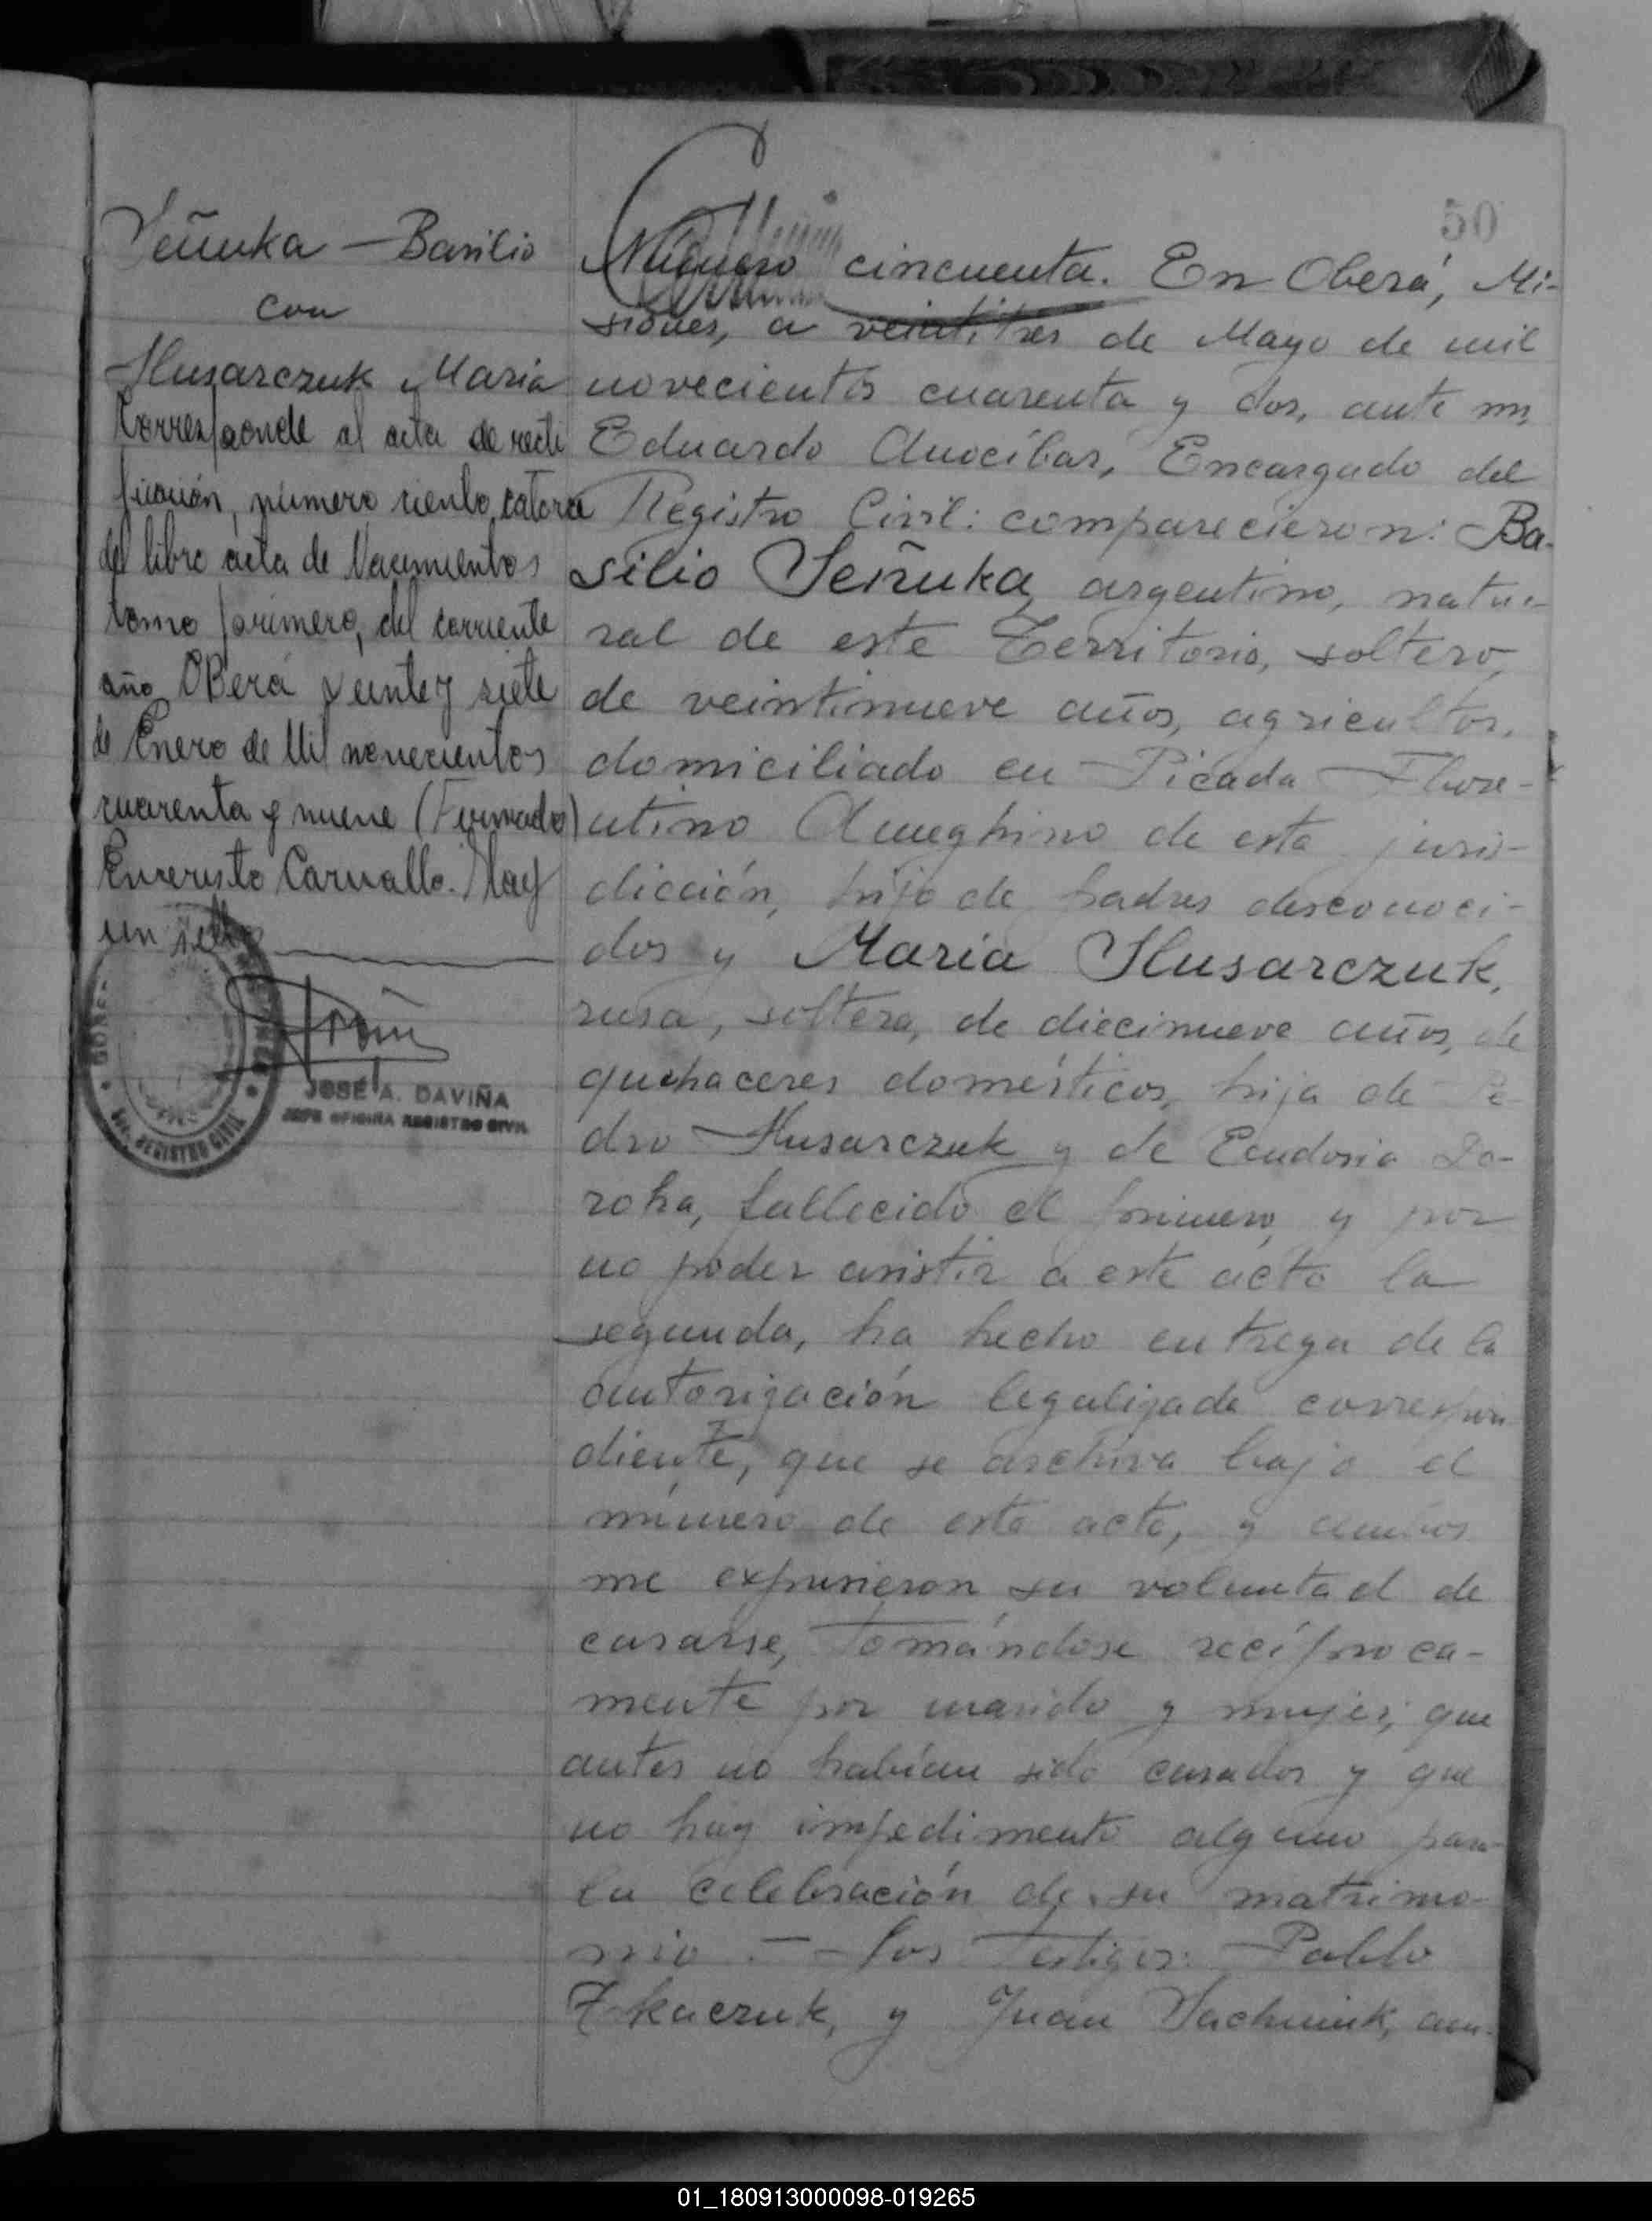 50
Señuka - Basilio
con
Husarczuk María
Corresponde al acta de recti
ficación, número ciento catorce
del libro acta de Nacimientos
tomo primero, del corriente
año OBerá veinte y siete
de Enero de Mil novecientos
cuarenta y nueve (Firmado)
Evaristo Carvallo. Hay
un sello
JOSÉ A. DAVIÑA
JEFE OFICINA REGISTRO CIVIL
REGISTRO CIVIL
Número cincuenta. En Oberá, Mi-
siones, a veintitres de Mayo de mil
novecientos cuarenta y dos, ante mi,
Eduardo Anocíbar, Encargado del
Registro Civil: comparecieron: Ba-
silio Señuka, argentino, natu-
ral de este Territorio, soltero,
de veintinueve años, agricultor,
domiciliado en Picada Flore-
ntino Ameghino de esta juris-
dicción, hijo de padres desconoci-
dos y María Husarczuk,
rusa, soltera, de diecinueve años, de
quehaceres domésticos, hija de Pe-
dro Husarczuk y de Eeudosia Do-
roha, fallecido el primero, y por
no poder asistir a este acto la
segunda, ha hecho entrega de la
autorización legalizada correspon
diente, que se archiva bajo el
número de esta acta, y ambos
me expusieron su voluntad de
casarse, tomándose recíproca-
mente por marido y mujer; que
antes no habían sido casados y que
no hay impedimento alguno para
la celebración de su matrimo-
nio. - Los testigos: Pablo
Tkaczuk, y Juan Wachniuk, am-
01_180913000098-019265